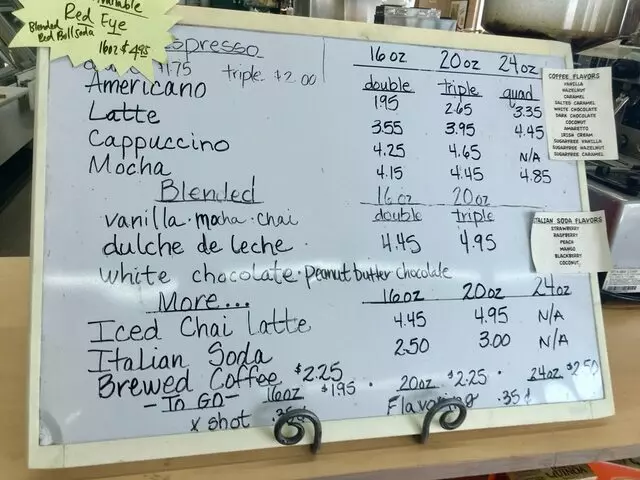 Available
Red Eye
Blended
Red Bull Soda
16oz $4.95
Espresso 16oz 20oz 24oz
$1.75 triple $2.00 double triple quad
Americano 1.95 2.65 3.35
Latte 3.55 3.95 4.45
Cappuccino 4.25 4.65 N/A
Mocha 4.15 4.45 4.85
Blended 16oz 20oz
vanilla · mocha · chai double triple
dulche de leche 4.45 4.95
white chocolate · peanut butter chocolate
More... 16oz 20oz 24oz
Iced Chai Latte 4.45 4.95 N/A
Italian Soda 2.50 3.00 N/A
Brewed Coffee $2.25
-To Go- 16oz $1.95 · 20oz $2.25 · 24oz $2.50
x shot Flavoring .35¢
COFFEE FLAVORS
VANILLA
HAZELNUT
CARAMEL
SALTED CARAMEL
WHITE CHOCOLATE
DARK CHOCOLATE
COCONUT
AMARETTO
IRISH CREAM
SUGARFREE VANILLA
SUGARFREE HAZELNUT
SUGARFREE CARAMEL
ITALIAN SODA FLAVORS
STRAWBERRY
RASPBERRY
PEACH
MANGO
BLACKBERRY
COCONUT